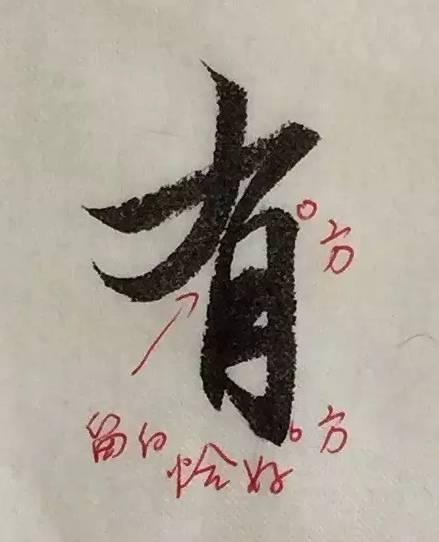 有
方
方
留白
恰好